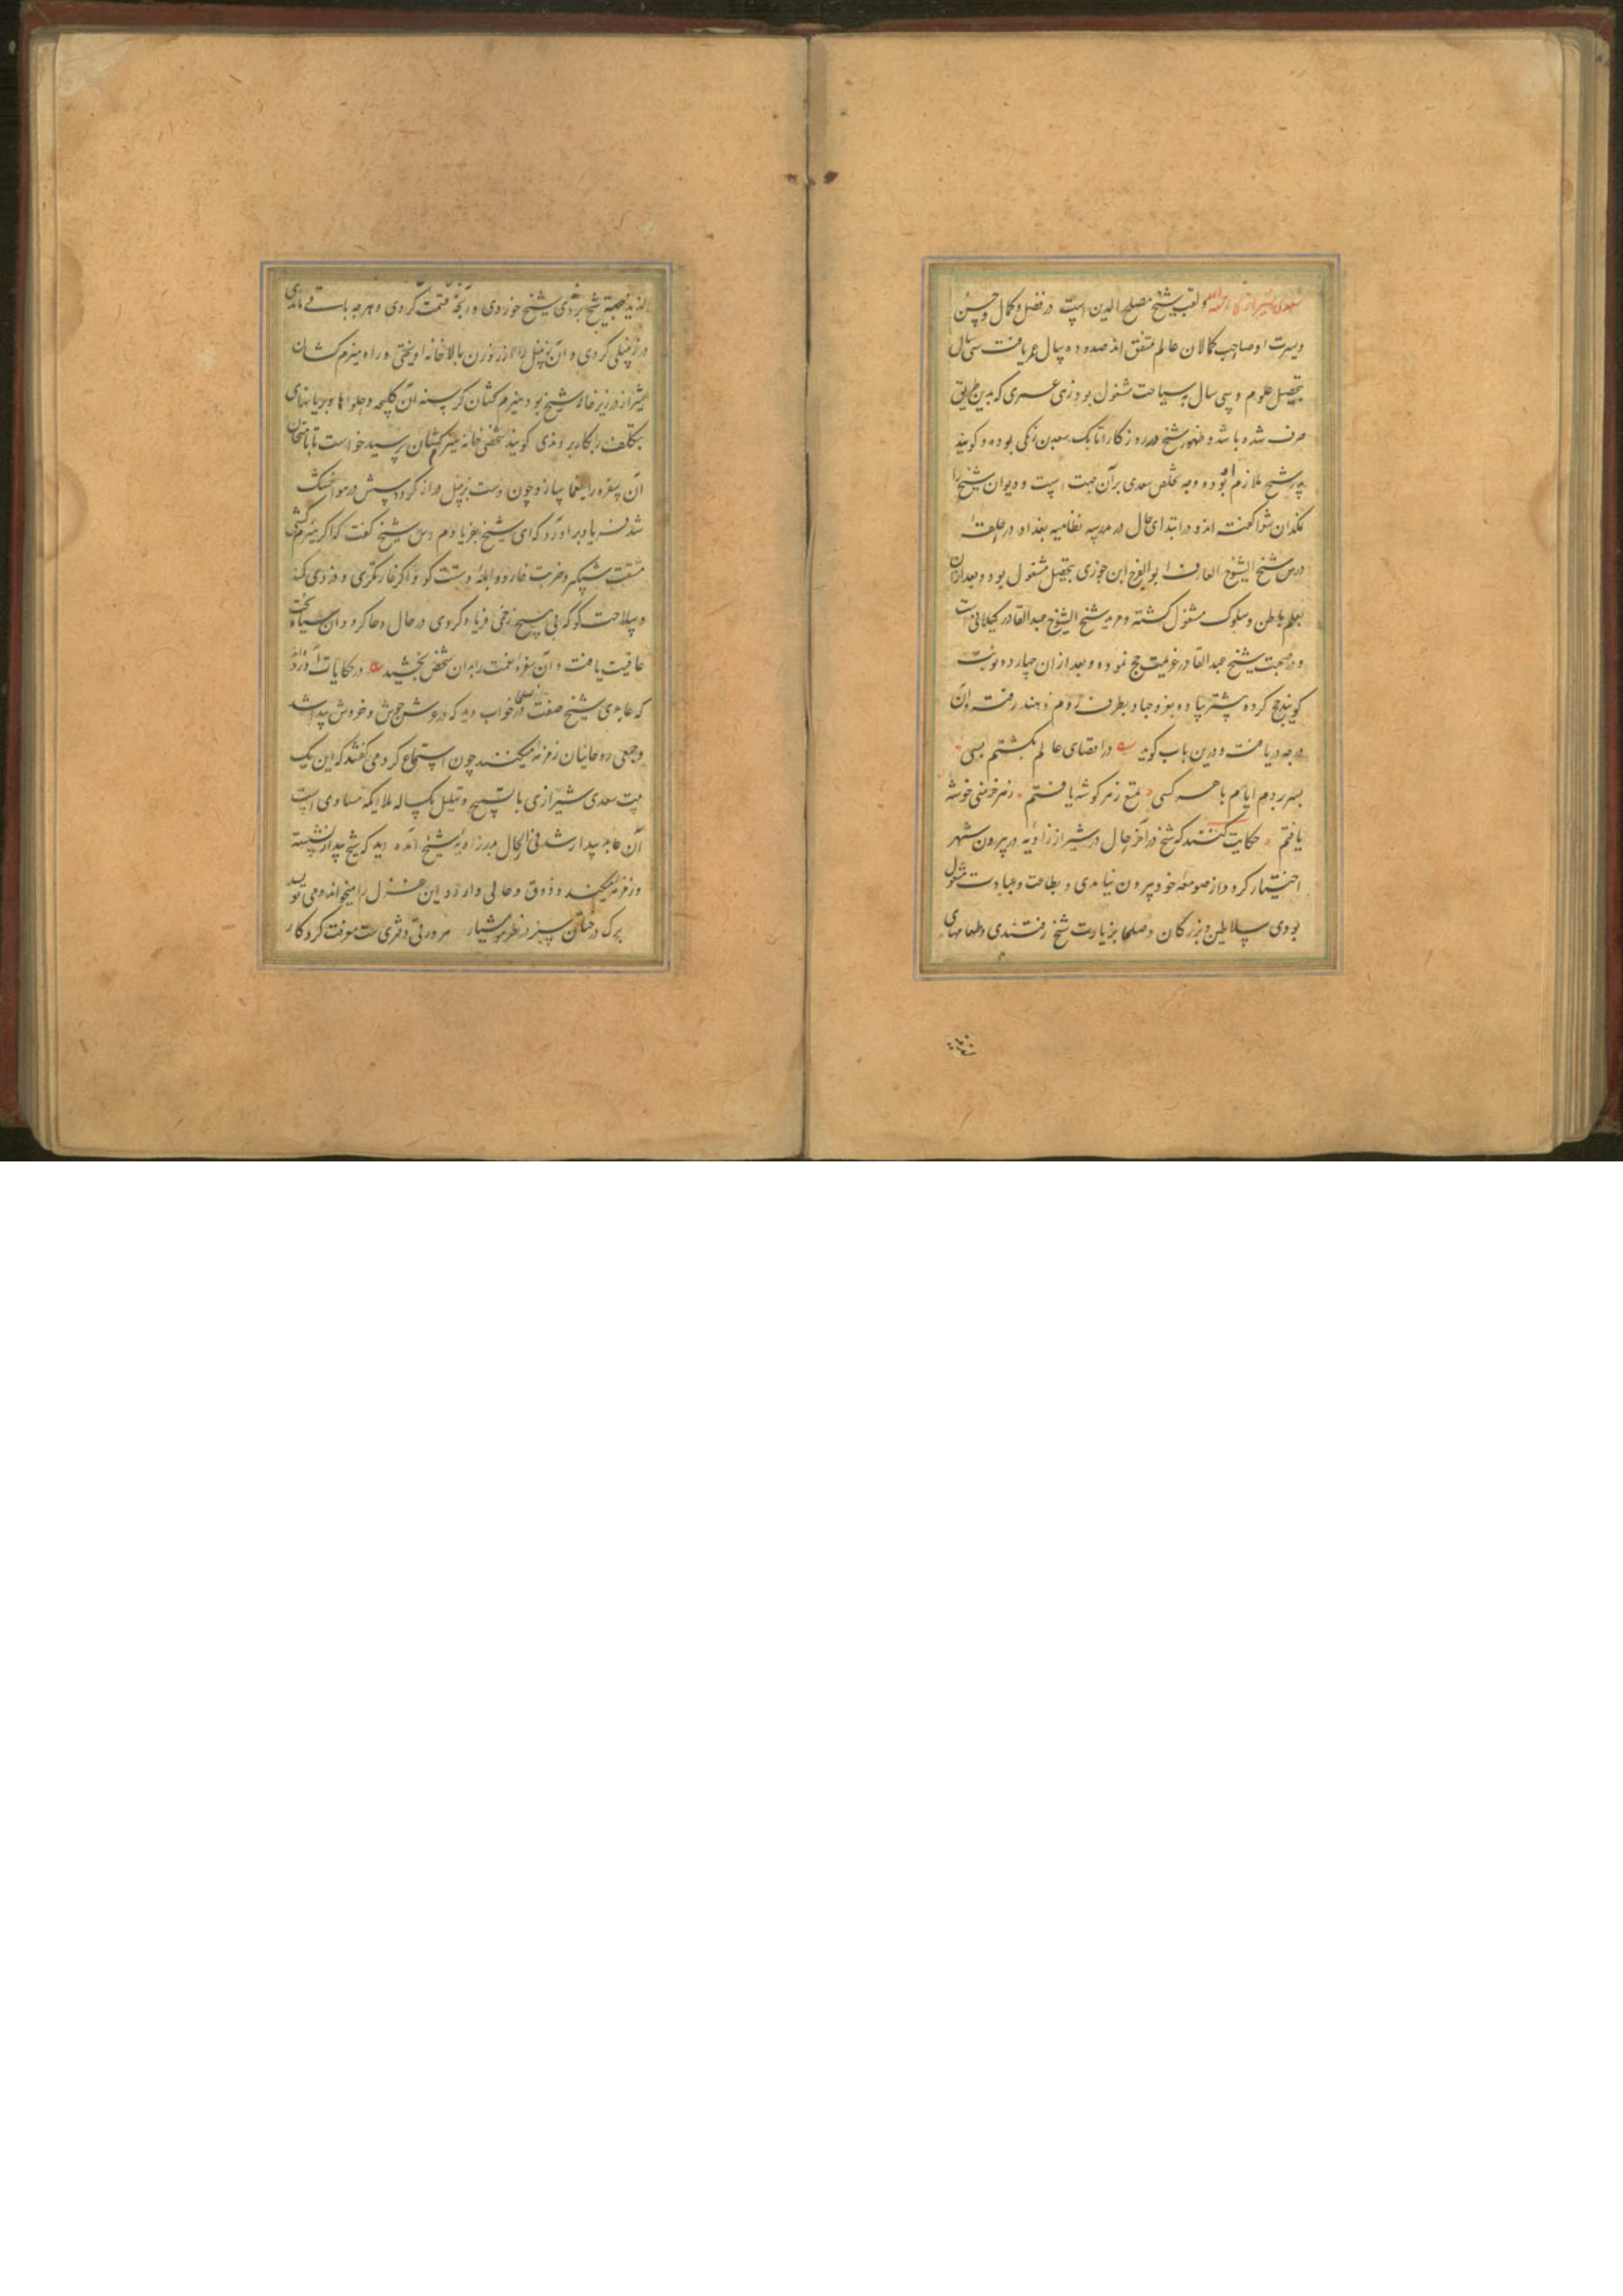 سعدی شیرازی رحمه الله و لقب شیخ مصلح الدین است در فضل و کمال و حسن
و سیرت او صاحب کمالان عالم متفق اند صد و ده سال عمر یافت سی سال
بتحصیل علوم و سی سال بسیاحت مشغول بود زهی عمری که بدین طریق
صرف شده باشد و ظهور شیخ در روزگار اتابک سعد بن زنکی بوده و کویند
پدر شیخ ملازم او بوده و وجه تخلص سعدی بر آن جهت است و دیوان شیخ را
نمکدان شعرا کفته اند و در ابتدای حال در مدرسه نظامیه بغداد در حلقه
درس شیخ الشیوخ العارف ابو الفرج ابن جوزی بتحصیل مشغول بود و بعد از آن
بعلم باطن و سلوک مشغول کشته و مرید شیخ الشیوخ عبد القادر کیلانی است
و در صحبت شیخ عبد القادر عزیمت حج نموده و بعد از ان چهارده نوبت
کویند حج کرده پشتر پیاده بغزو جهاد بطرف روم و هند رفته و آن
درجه دریافت و درین باب کوید در اقصای عالم بکشتم بسی
بسر بردم ایام با هر کسی تمتع ز هر کوشه یافتم ز هر خرمنی خوشه
یافتم حکایت کنند که شیخ در آخر حال در شیراز زاویه در پرون شهر
اختیار کرد و از صومعه خود پرون نیامدی و بطاعت و عبادت مشغول
بودی سلاطین و بزرکان و صلحا بزیارت شیخ رفتندی و طعامهای
لذیذ بجهة شیخ بردی شیخ خوردی و آنچه قسمت کردی و هرچه باقی ماندی
در زنبیلی کردی و آن زنبیل را از روزن بالاخانه اویختی و راه هیزم کشان
شیراز در زیر خانه شیخ بود هیزم کشان کرسنه آن کلیچه و حلواها و بریانهای
بتکلف را کار بردندی کویند شخصی جامه هیزم کشان پوشید خواست تا بامتحان
آن سفره را یغما سازد چون دست بزنبیل دراز کرد دستش در هوا خشک
شد فریاد بر اورد که ای شیخ بفریادم رس شیخ کفت که اگر هیزم کشی
مشقت شبکیر و ضربت خار و ابله دستت کو و اگر غارتکری و دزدی کمند
و سلاحت کو که بی هیچ زخمی فریاد کردی در حال دعا کرد و آن سیاه بخت
عافیت یافت و آن سفره نعمت را بدان شخص بخشید در حکایات آورده اند
که عابدی شیخ صفت از صلحا در خواب دید که در عرش جوش و خروش پیدا شد
و جمعی روحانیان زمزمه میکنند چون استماع کرد می کفتند که این یک
بیت سعدی شیرازی با تسبیح و تهلیل یکساله ملایکه مساوی است
آن عابد بیدار شد فی الحال بدر زاویه شیخ آمده دید که شیخ بیدار نشسته
و زمزمه میکند و ذوق و حالی دارد و این غزل را میخواند و می نویسد
برک درختان سبز در نظر هوشیار هر ورقی دفتریست معرفت کردکار